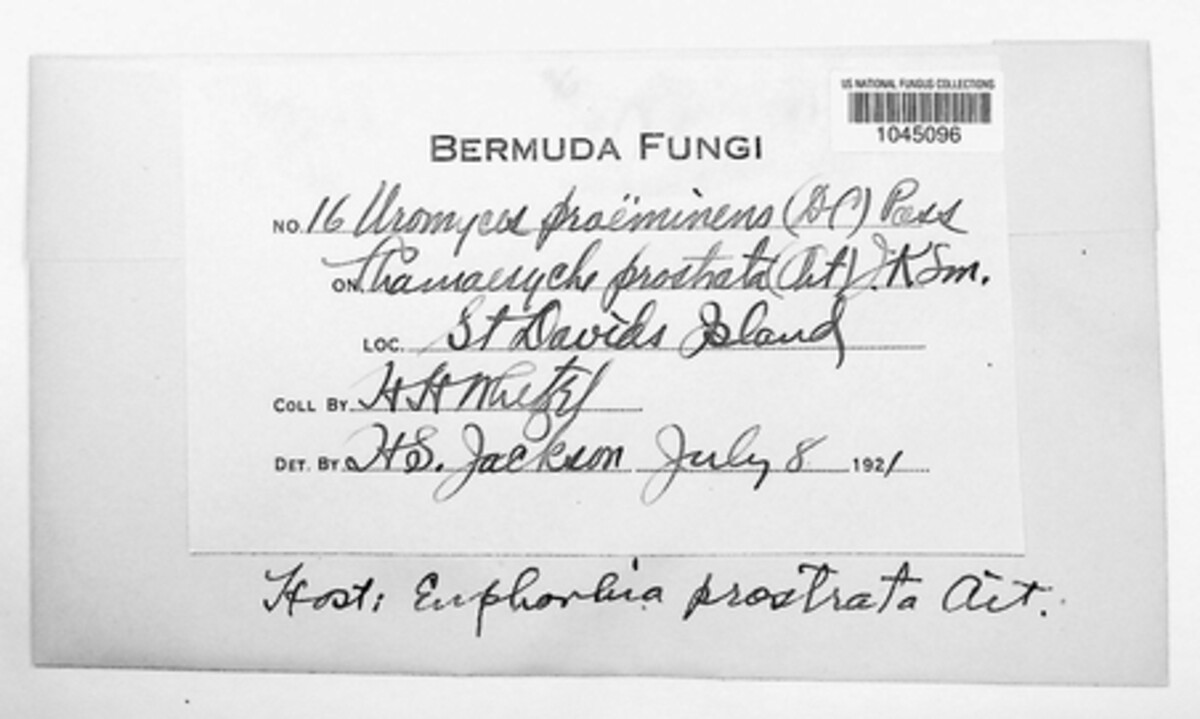 US NATIONAL FUNGUS COLLECTIONS
1045096
BERMUDA FUNGI
NO. 16 Uromyces proëminens (DC) Pass
ON Chamaesyche prostrata (Ait) J.K Sm.
LOC. St Davids Island
COLL BY H H Whetzel
DET. BY H S. Jackson July 8 1921
Host: Euphorbia prostrata Ait.